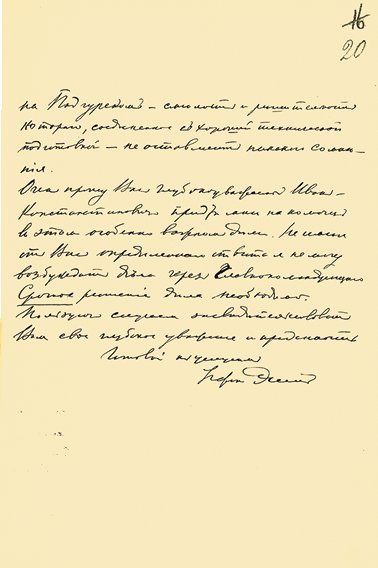 16
20
на Подгурском – смелость и решительность
которого, соединенное с хорошей технической
подготовкой – не оставляет никакого сомне-
ния.
прошу Вас глубокоуважаемый Иван
Константинович придти мне на помощь
в этом особенно важном деле. Не имея
от Вас определенного ответа я не могу
возбуждать дела через Главнокомандующего
Срочное решение дела необходимо.
Пользуюсь случаем засвидетельствовать
Вам свое глубокое уважение и преданность
Готовый к услугам
Эссен